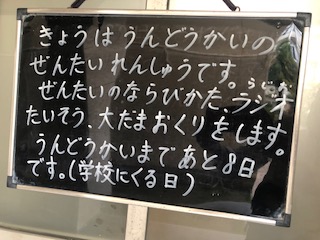 きょうは うんどうかいの
ぜんたい れんしゅうです。
ぜんたいのならびかた、ラジオ
たいそう、大だまおくりをします。
うんどうかいまで あと8日
です。(学校にくる日)